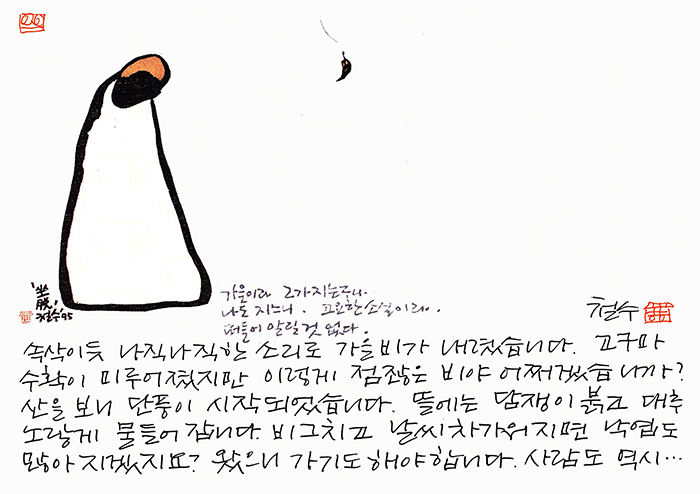 '坐
脫'
철수95
가을이라 그가 지는구나.
나도 지느니. 고요한 소멸이라.
떠들어 알릴 것 없다.
철수
속삭이듯 나직나직한 소리로 가을비가 내렸습니다. 고구마
수확이 미루어졌지만 이렇게 점잖은 비야 어쩌겠습니까?
산을 보니 단풍이 시작되었습니다. 뜰에는 담쟁이 붉고 대추
노랗게 물들어 갑니다. 비그치고 날씨 차가워지면 낙엽도
많아지겠지요? 왔으니 가기도 해야 합니다. 사람도 역시…